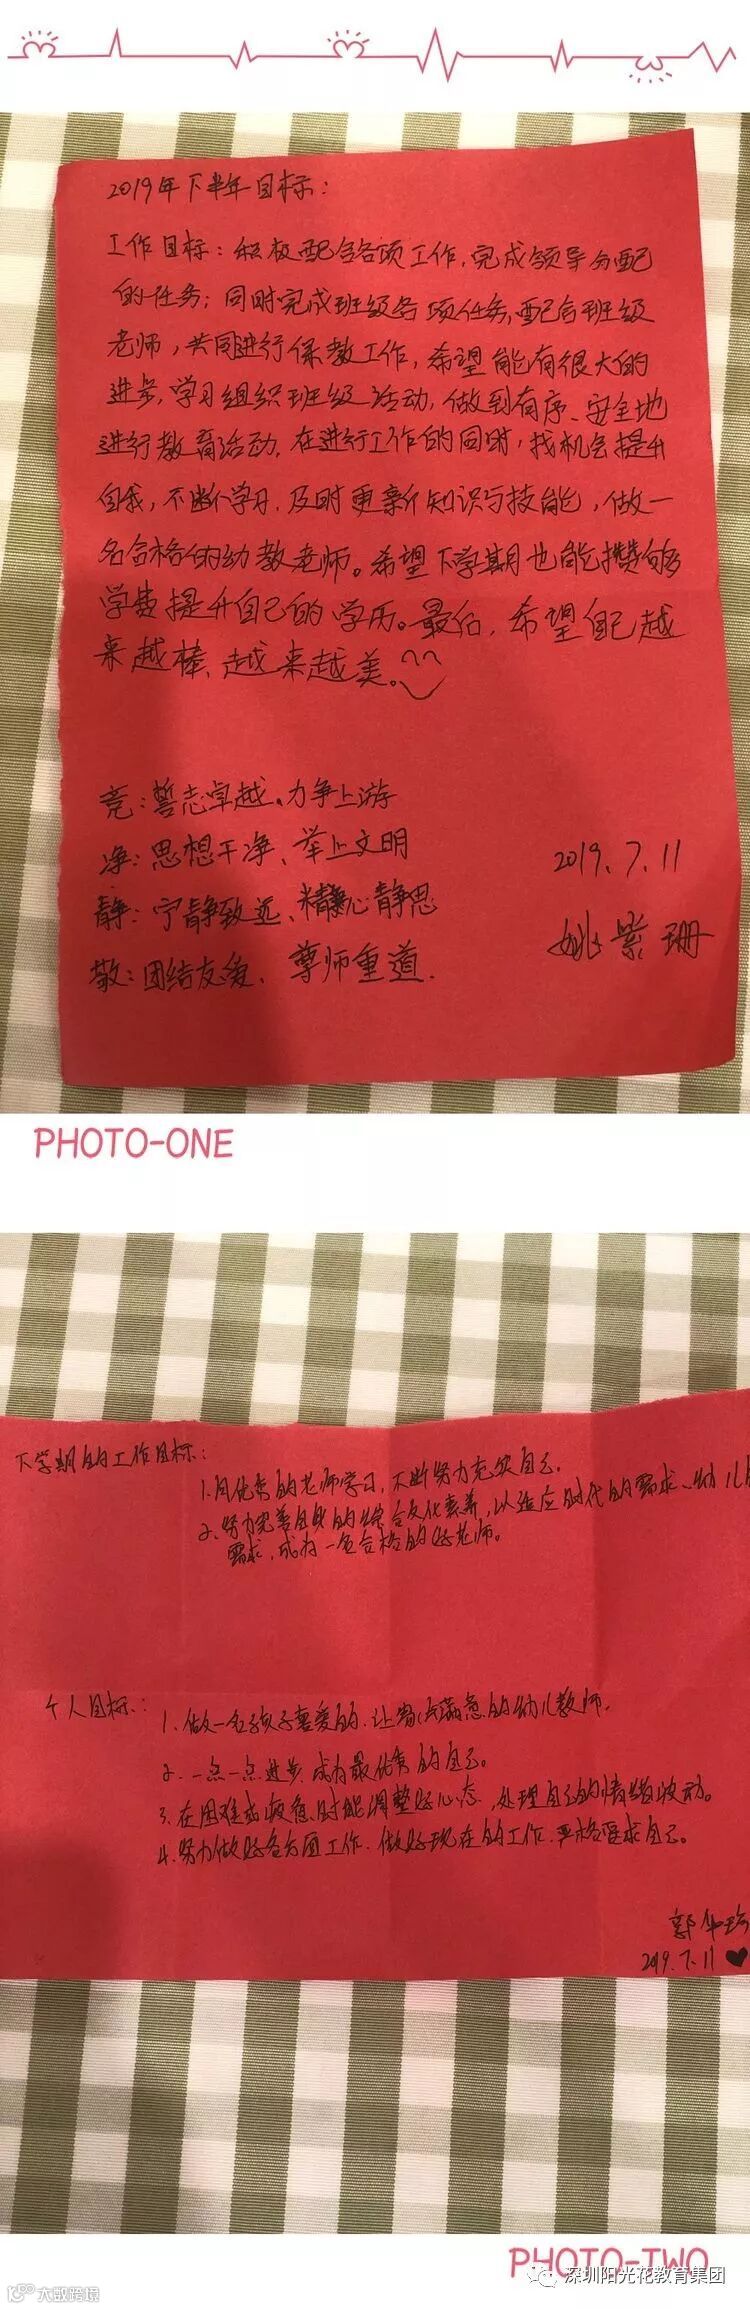 2019年下半年目标：
工作目标：积极配合各项工作，完成领导分配
的任务；同时完成班级各项任务，配合班级
老师，共同进行保教工作，希望能有很大的
进步，学习组织班级活动，做到有序、安全地
进行教育活动。在进行工作的同时，找机会提升
自我，不断学习，及时更新知识与技能，做一
名合格的幼教老师。希望下学期也能攒够
学费提升自己的学历。最后，希望自己越
来越棒、越来越美。
竞：誓志卓越、力争上游
净：思想干净、举止文明
静：宁静致远、精心静思
敬：团结友爱、尊师重道.
2019.7.11
姚紫珊
PHOTO-ONE
下学期的工作目标：
1.向优秀的老师学习，不断努力充实自己。
2.努力完善自身的综合文化素养，以适应时代的需求、幼儿
需求，成为一名合格的好老师。
个人目标：
1.做一名孩子喜爱的、让家长满意的幼儿教师。
2.一点一点进步 成为最优秀的自己。
3.在困难或疲惫时能调整好心态，处理自己的情绪波动。
4.努力做好各方面工作、做好现在的工作、严格要求自己。
2019.7.11
PHOTO-TWO
深圳阳光花教育集团
大数跨境